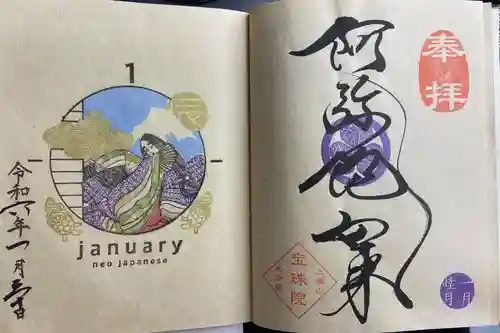 1
辰
january
neo japanese
令和六年一月三日
奉拝
阿弥陀如来
三縁山
宝珠院
一月
睦月